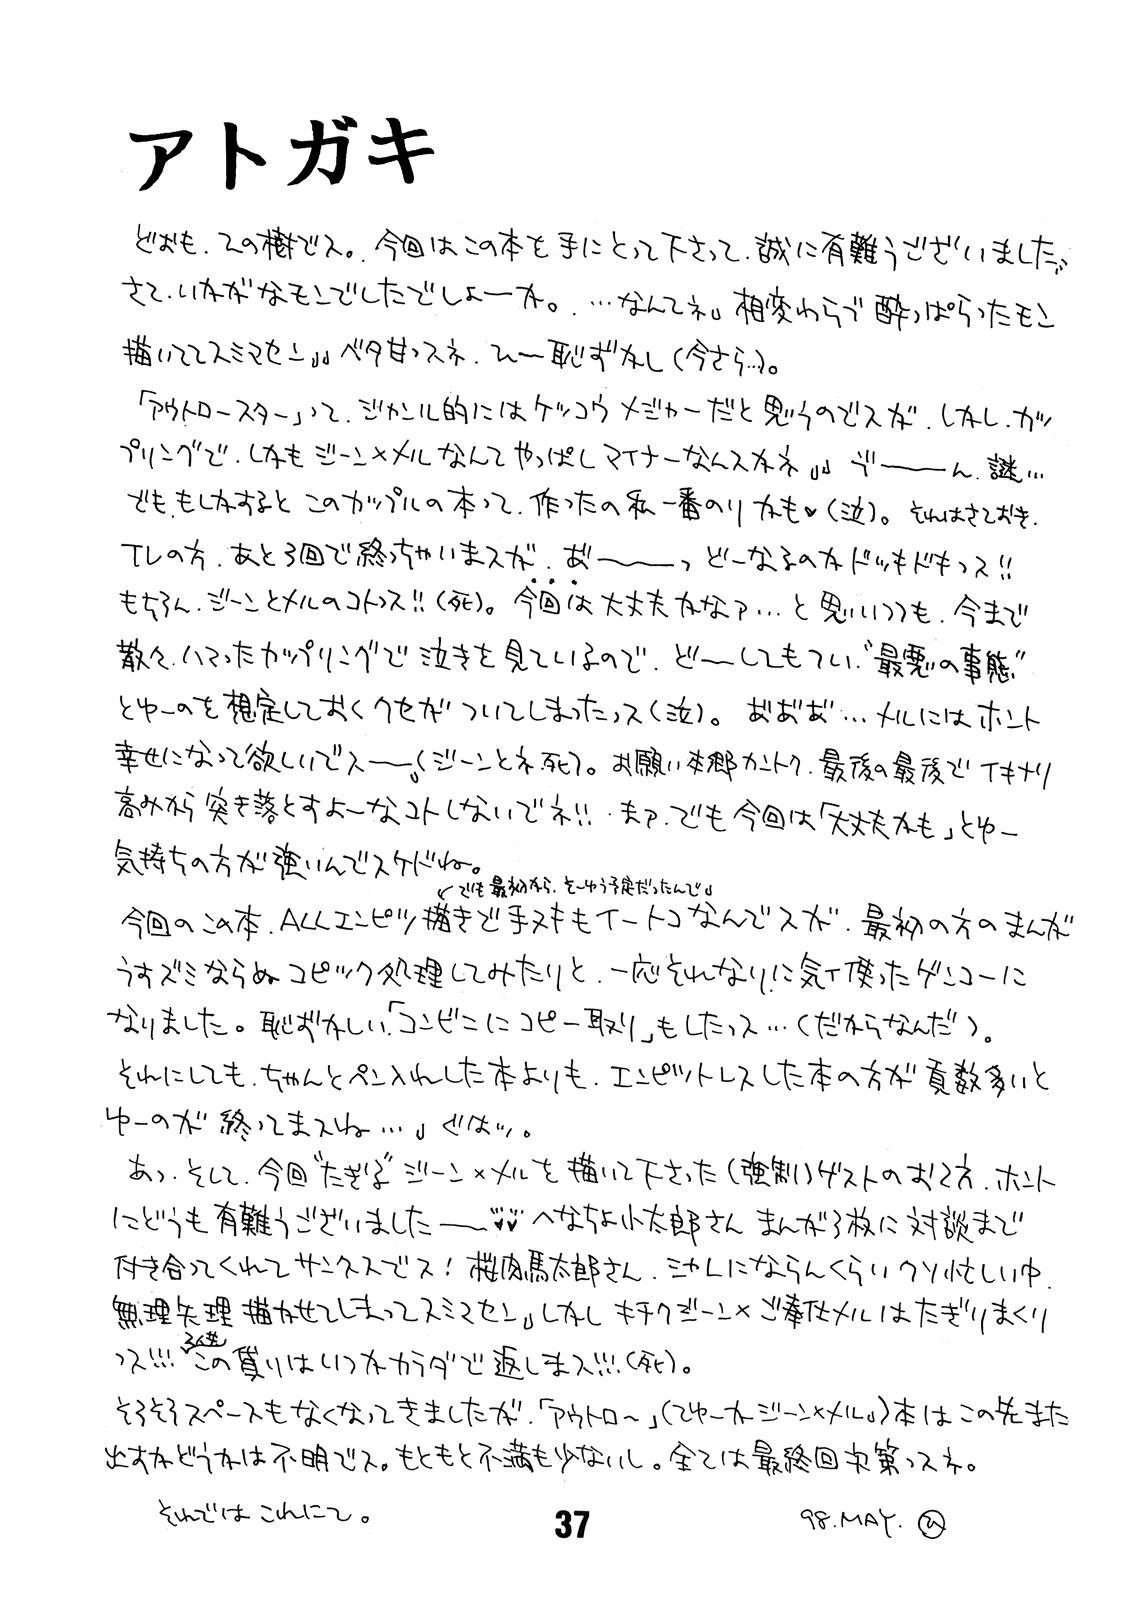 アトガキ
どおも、ひの樹でス。今回はこの本を手にとって下さって、誠に有難うございました。
さて、いかがなモンでしたでしょーか。…なんてネ 相変わらず酔っぱらったモン
描いててスミマセン ベタ甘っスネ、ひー恥ずかし(今さら…)。
「アウトロースター」って、ジャンル的にはケッコウメジャーだと思うのでスが、しかし、カッ
プリングで、しかもジーン×メルなんてやっぱしマイナーなんスかネ ゔーーん、謎…
でも、もしかするとこのカップルの本って、作ったの私一番のりかも♥(泣)。それはさておき、
TVの方、あと3回で終っちゃいまスが、あ゛ーーっ どーなるのかドッキドキっス!!
もちろん、ジーンとメルのコトっス!!(死)。今回は大丈夫かなァ…と思いつつも、今まで
散々、ハマったカップリングで泣きを見ているので、どーしてもつい、“最悪の事態”
とゆーのを想定しておくクセがついてしまったっス(泣)。あ゛あ゛あ゛…メルにはホント
幸せになって欲しいでスーー(ジーンとネ、死)。お願い本郷カントク、最後の最後でイキナリ
高みから突き落とすよ〜なコトしないでネ!! まァ、でも今回は「大丈夫かも」とゆー
気持ちの方が強いんでスケドね。
↙でも最初から、そーゆう予定だったんで
今回のこの本、ALLエンピツ描きで手ヌキもイートコなんでスが、最初の方のまんが
うすズミならぬコピック処理してみたりと、一応それなりに気イ使ったゲンコーに
なりました。恥ずかしい、「コンビニにコピー取り」もしたっス…(だからなんだ)。
それにしても、ちゃんとペン入れした本よりも、エンピツトレスした本の方が頁数多いと
ゆーのが終ってまスね… ぐはッ。
あっ、そして、今回“たぎる”ジーン×メルを描いて下さった(強制)ゲストのおてえ、ホント
にどうも有難うございましたーー♥♥ へなちょ小太郎さん まんが3枚に対談まで
付き合ってくれてサンクスでス! 桜肉馬太郎さん、ミカLにならんくらいクソ忙しい中、
無理矢理描かせてしまってスミマセン しかしキチクジーン×ご奉仕メルはたぎりまくり
っス!!! この貸りはいつかカラダで返しまス!!!(死)。
そろそろスペースもなくなってきましたが、「アウトロ〜」(てゆーかジーン×メル)本はこの先また
出すかどうかは不明でス。もともと不満も少ないし。全ては最終回次第っスネ。
それではこれにて。
98.MAY. ひ
37